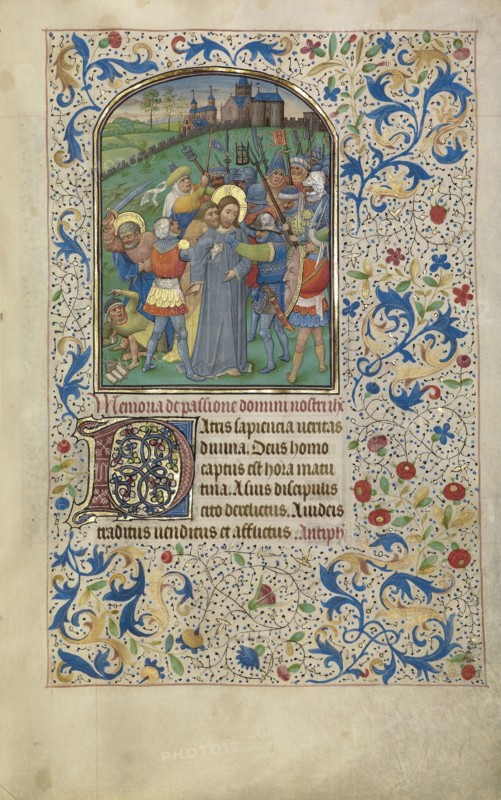 Memoria de passione domini nostri ihx
Patris sapiencia ueritas
diuina. Deus homo
captus est hora matu
tina. A suis discipulis
cito derelictus. A iudeis
traditus uenditus et afflictus. Antiph
PHOTO12